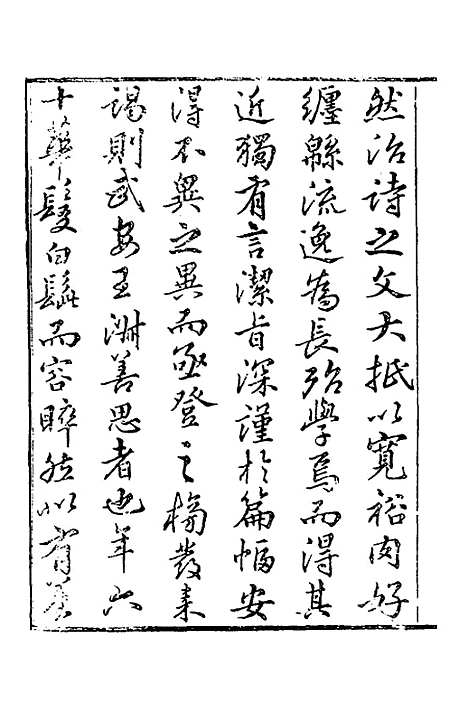 然治詩之文大抵以寬裕肉好
纏緜流逸為長殆學焉而得其
近獨有言潔旨深謹於篇幅安
得不異之異而亟登之榜發來
謁則武安王淋善思者也年六
十華髮白鬚而容睟然似有